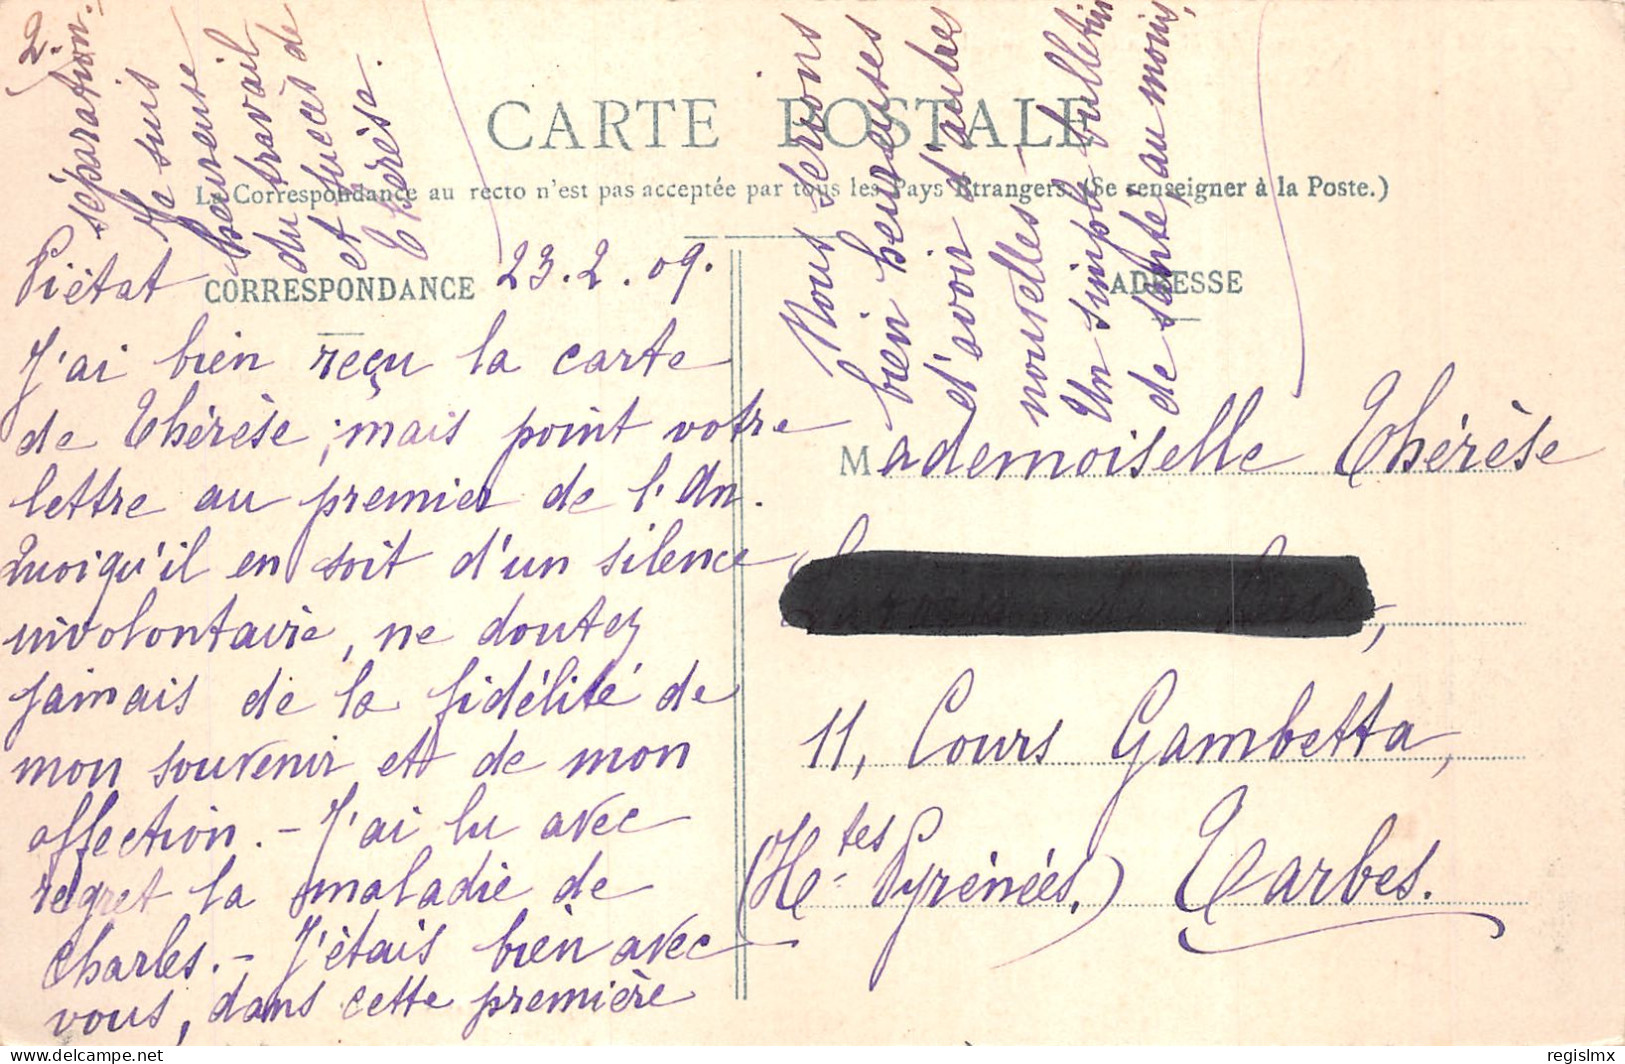 CARTE POSTALE
La Correspondance au recto n'est pas acceptée par tous les Pays Etrangers. (Se renseigner à la Poste.)
CORRESPONDANCE
ADRESSE
Piétat 23.2.09.
J'ai bien reçu la carte
de Thérèse ; mais point votre
lettre au premier de l'An.
Quoiqu'il en soit d'un silence
involontaire, ne doutez
jamais de la fidélité de
mon souvenir et de mon
affection. - J'ai lu avec
regret la maladie de
Charles. - J'étais bien avec
vous, dans cette première
2.
séparation.
Je suis
heureuse
du travail
et succès de
Thérèsa.
Nous serions
bien heureuses
d'avoir d'autres
nouvelles -
Un simple bulletin
de santé, au moins,
Mademoiselle Thérèse
11, Cours Gambetta,
(Htes Pyrénées.) Tarbes.
regislmx
delcampe.net